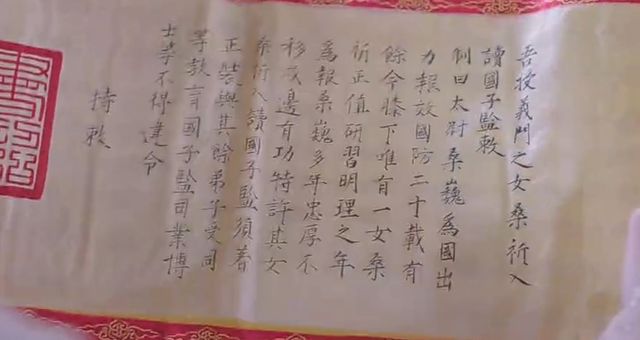 吾授義門之女桑祈入
讀國子監敕
制曰太尉桑巍為國出
力報效國防二十載有
餘今膝下唯有一女桑
祈正值研習明理之年
為報桑巍多年忠厚不
移戍邊有功特許其女
桑祈入讀國子監須著
正裝與其餘弟子受同
等教育國子監司業博
士等不得違令
持敕